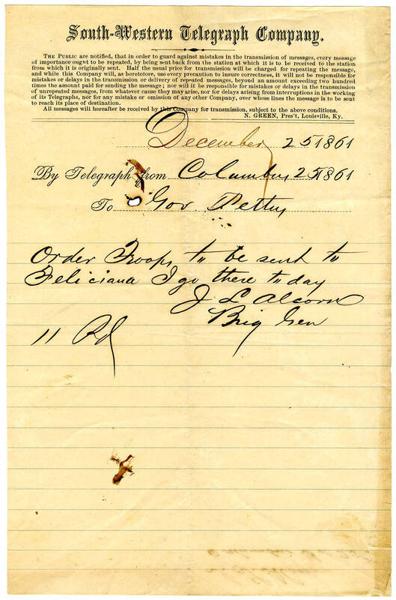 South-Western Telegraph Company.
THE PUBLIC are notified, that in order to guard against mistakes in the transmission of messages, every message
of importance ought to be repeated, by being sent back from the station at which it is to be received to the station
from which it is originally sent. Half the usual price for transmission will be charged for repeating the message,
and while this Company will, as heretofore, use every precaution to insure correctness, it will not be responsible for
mistakes or delays in the transmission or delivery of repeated messages, beyond an amount exceeding two hundred
times the amount paid for sending the message; nor will it be responsible for mistakes or delays in the transmission
of unrepeated messages, from whatever cause they may arise, nor for delays arising from interruptions in the working
of its Telegraphs, nor for any mistake or omission of any other Company, over whose lines the message is to be sent
to reach its place of destination.
All messages will hereafter be received by this Company for transmission, subject to the above conditions.
N. GREEN, Pres't, Louisville, Ky.
December 25 1861
By Telegraph from Columbus 25 1861
To Gov. Pettus
Order Troops to be sent to
Feliciana I go there to day
J L Alcorn
Brig Gen
11 Pd